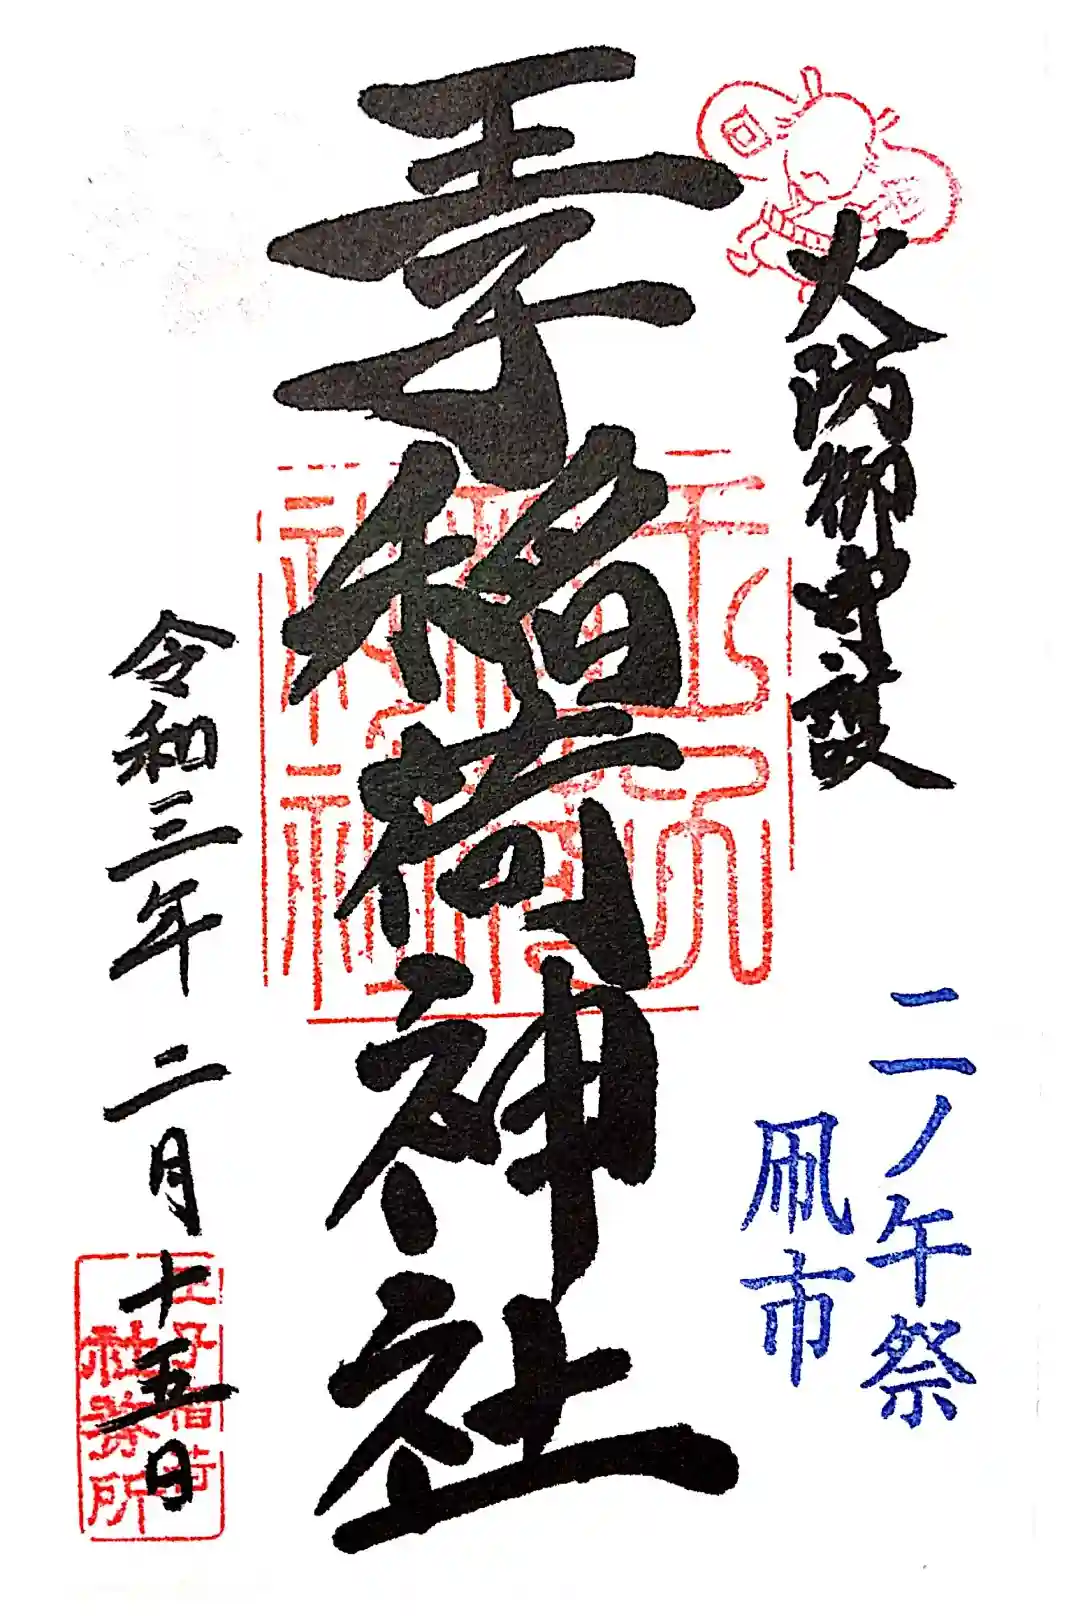 火防御守護
二ノ午祭
凧市
王子稲荷神社
王子稲荷神社
令和三年 二月十五日
王子稲荷
社務所